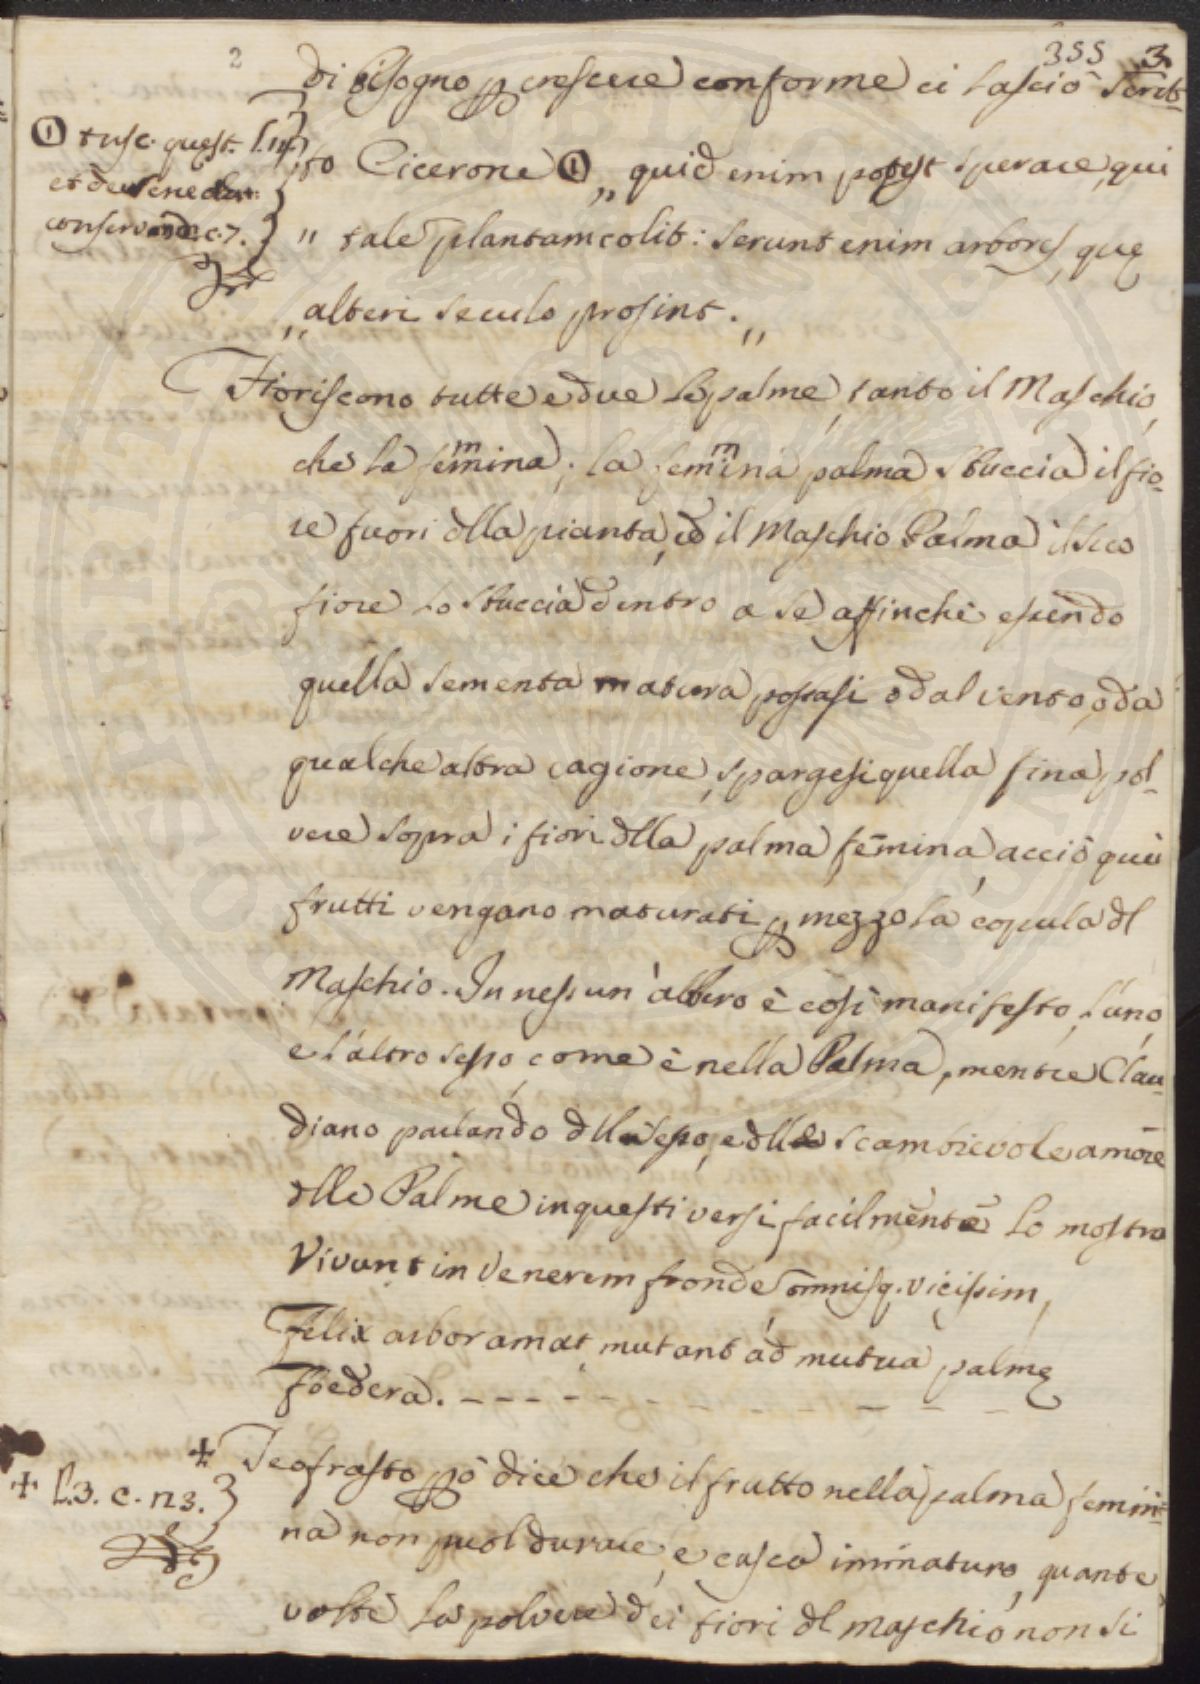 2
355 3.
di bisogno p crescere conforme ci lasciò Scrit-
① tusc. quest. l.
et de Senect:
conservand. c. 7.
to Cicerone ① „ quid enim potest sperare, qui
„ tale plantam colit: Serunt enim arbores, quę
„ alteri seculo prosint. „
Fioriscono tutte e due le palme, tanto il Maschio,
che la femmina; la femmina palma sbuccia il fio-
re fuori dlla pianta, ed il Maschio Palma il suo
fiore lo sbuccia dentro a se affinchè essendo
quella sementa matura possasi o dal vento, o da
qualche altra cagione, spargesi quella fina pol-
vere sopra i fiori dlla palma fēmina, acciò quei
frutti vengano maturati p mezzo la copula dl
Maschio. In nessun' albero è così manifesto l'uno,
e l'altro sesso, come è nella Palma, mentre Clau-
diano parlando dll sesso, e dllo scambievole amōre
dlle Palme in questi versi facilmēnte lo mostra
Vivunt in Venerem fronde omnisq. vicissim,
Felix arbor amat, mutant ad mutua palmę
Foedera. - - - - - - - - - - -
+ Teofrasto pò dice che il frutto nella palma femmi-
+ l. 3. c. n3.
na non puol durare, e casca iminaturo, quante
volte la polvere dei fiori dl maschio non si